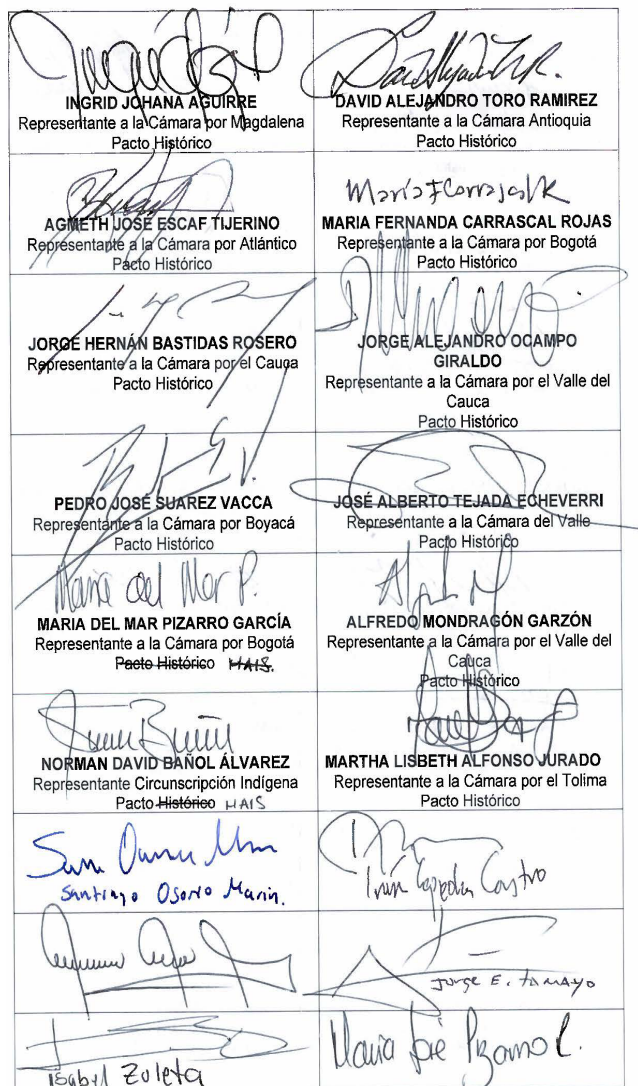 INGRID JOHANA AGUIRRE
Representante a la Cámara por Magdalena
Pacto Histórico
DAVID ALEJANDRO TORO RAMIREZ
Representante a la Cámara Antioquia
Pacto Histórico
AGMETH JOSÉ ESCAF TIJERINO
Representante a la Cámara por Atlántico
Pacto Histórico
María F Carrascal R
MARIA FERNANDA CARRASCAL ROJAS
Representante a la Cámara por Bogotá
Pacto Histórico
JORGE HERNÁN BASTIDAS ROSERO
Representante a la Cámara por el Cauca
Pacto Histórico
JORGE ALEJANDRO OCAMPO
GIRALDO
Representante a la Cámara por el Valle del
Cauca
Pacto Histórico
PEDRO JOSÉ SUAREZ VACCA
Representante a la Cámara por Boyacá
Pacto Histórico
JOSÉ ALBERTO TEJADA ECHEVERRI
Representante a la Cámara del Valle
Pacto Histórico
Maria del Mar P.
MARIA DEL MAR PIZARRO GARCÍA
Representante a la Cámara por Bogotá
Pacto Histórico MAIS.
ALFREDO MONDRAGÓN GARZÓN
Representante a la Cámara por el Valle del
Cauca
Pacto Histórico
NORMAN DAVID BAÑOL ÁLVAREZ
Representante Circunscripción Indígena
Pacto Histórico MAIS
MARTHA LISBETH ALFONSO JURADO
Representante a la Cámara por el Tolima
Pacto Histórico
Santiago Osorio Marin.
Iván Cepeda Castro
Jorge E. TAMAYO
Isabel Zuleta
María José Pizarro R.